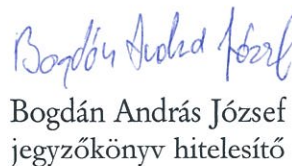 Bogdán András József
Bogdán András József
jegyzőkönyv hitelesítő